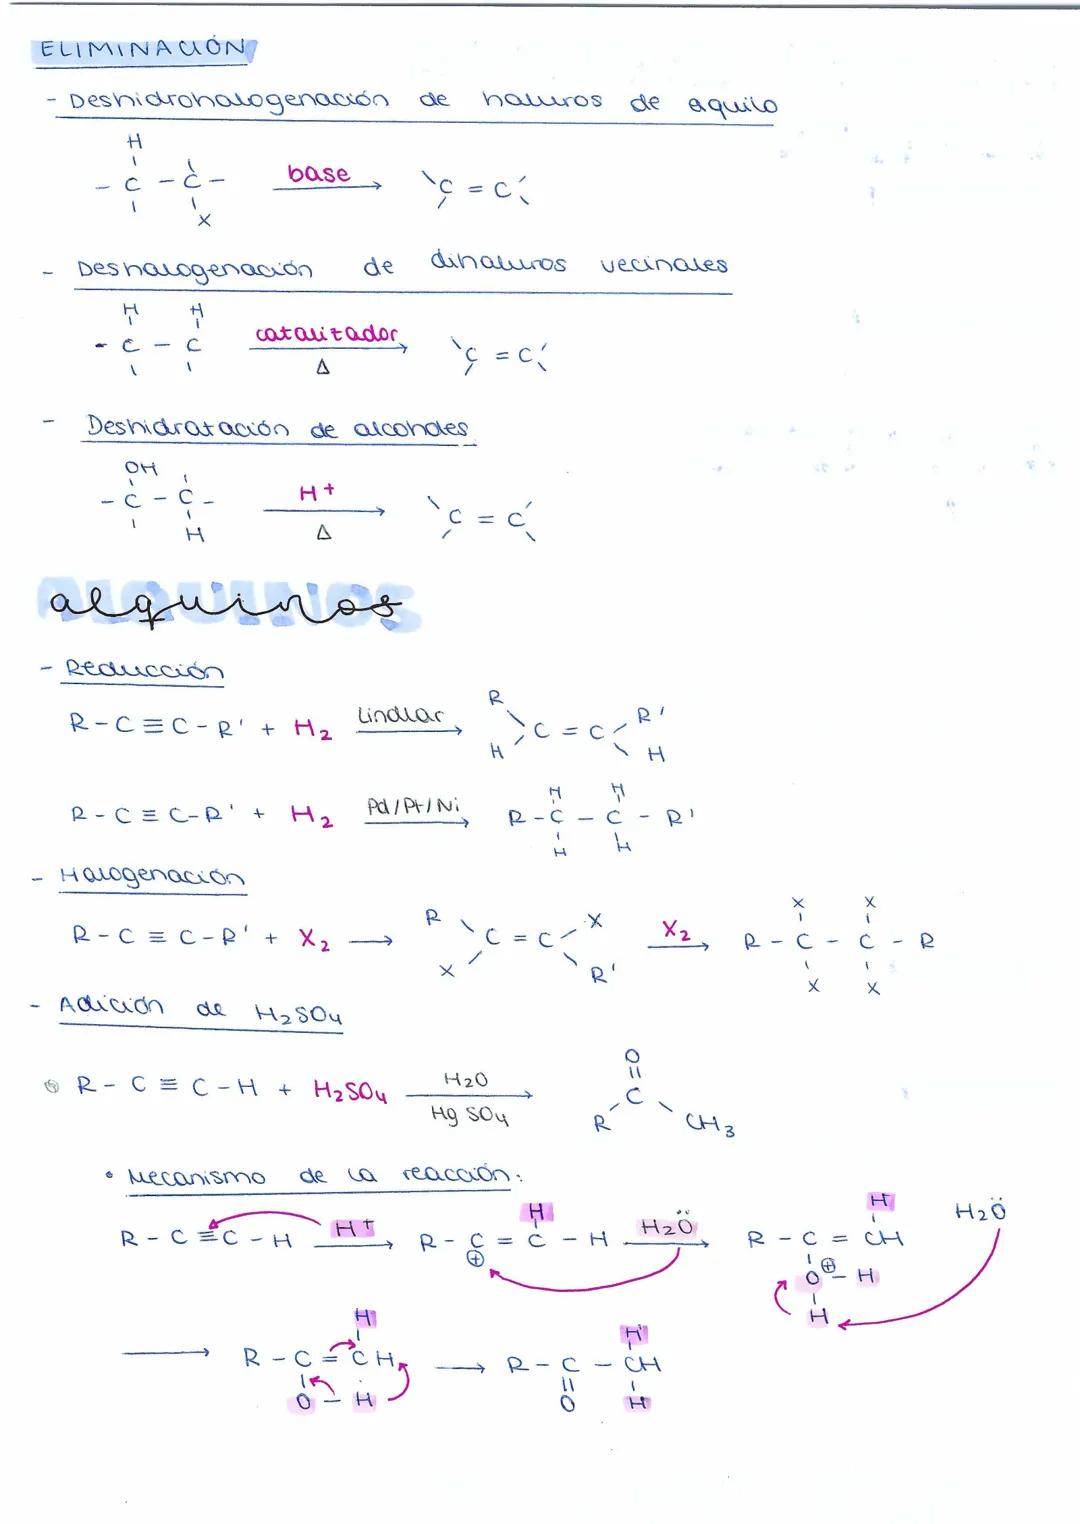 ELIMINACIÓN
- Deshidrohalogenación de haluros de aquilo
H
- C - C -
X
base
C = C
- Deshalogenación de dihaluros vecinales
H H
- C - C
catalizador
Δ
C = C
- Deshidratación de alcoholes
OH
- C - C -
H
H+
Δ
C = C
alquinos
- Reducción
R - C ≡ C - R' + H2 Lindlar
R R'
C = C
H H
R - C ≡ C - R' + H2 Pd/Pt/Ni
H H
R - C - C - R'
H H
- Halogenación
R X X X
R - C ≡ C - R' + X2 → C = C X2 R - C - C - R
X R' X X
- Adición de H2SO4
R - C ≡ C - H + H2SO4
H2O
Hg SO4
O
C
R CH3
• Mecanismo de la reacción:
H H
R - C ≡ C - H H+ R - C = C - H H2Ö R - C = CH H2Ö
⊕ O⊕ - H
H
H H
R - C = CH → R - C - CH
O - H O H